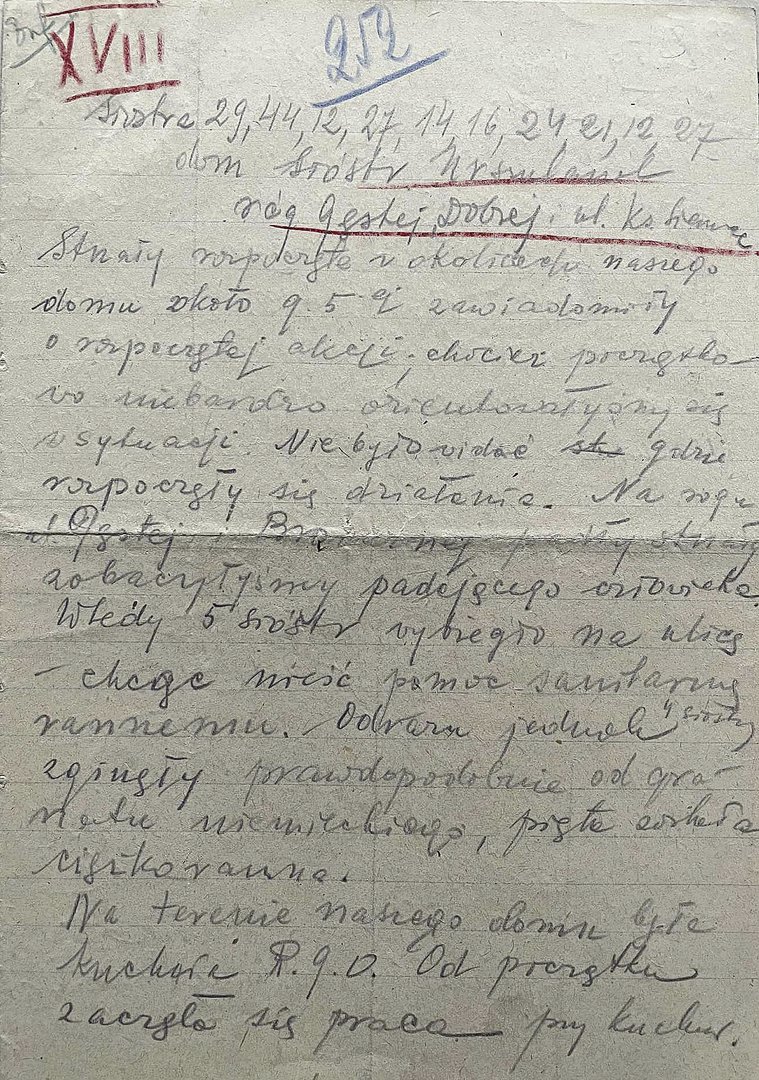 XVIII
252
Siostra 29, 44, 12, 27, 14, 16, 24 21, 12, 27,
dom Sióstr Urszulanek
róg Gęstej, Dobrej i ul.
Strzały rozpoczęte w okolicach naszego
domu około g. 5-ej zawiadomiły
o rozpoczętej akcji, chociaż początko-
wo niebardzo orientowałyśmy się
w sytuacji. Nie było widać gdzie
rozpoczęły się działania. Na rogu
ul. Gęstej i Browarnej padły strzały
zobaczyłyśmy padającego człowieka.
Wtedy 5 sióstr wybiegło na ulicę
– chcąc nieść pomoc sanitarną
rannemu. Odrazu jednak 4 siostry
zginęły prawdopodobnie od gra-
natu niemieckiego, piąta została
ciężko ranna.
Na terenie naszego domu była
kuchnia R.G.O. Od początku
zaczęła się praca przy kuchni.